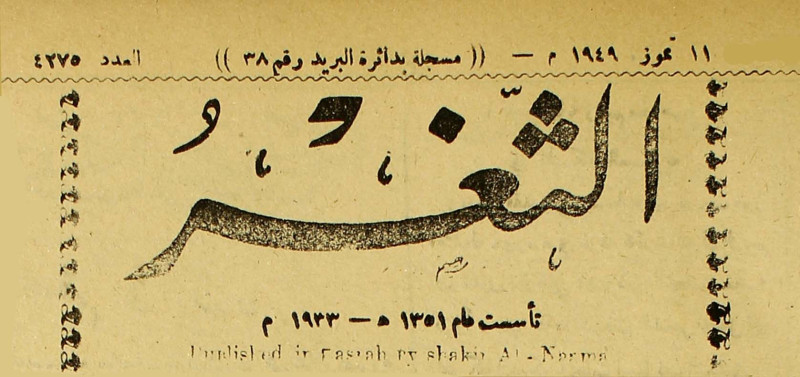 ١١ تموز ١٩٤٩ م — (( مسجلة بدائرة البريد رقم ٣٨ )) العدد ٤٢٧٥
الثَّغْرُ
تأسست عام ١٣٥١ ه — ١٩٣٣ م
Published in Basrah by shakir Al-Nazma